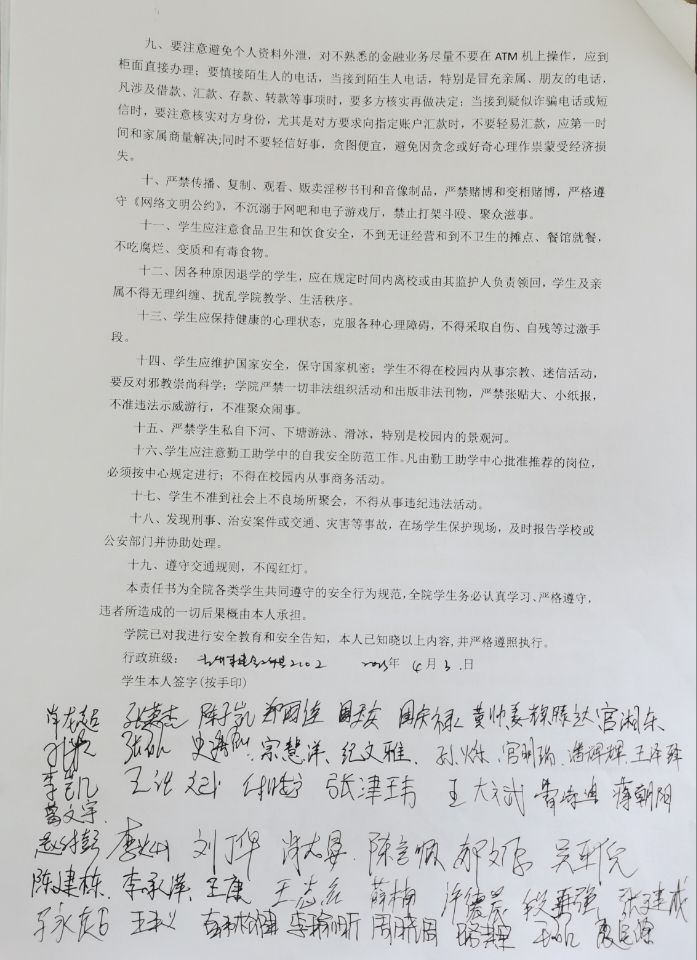 九、要注意避免个人资料外泄，对不熟悉的金融业务尽量不要在 ATM 机上操作，应到
柜面直接办理；要慎接陌生人的电话，当接到陌生人电话，特别是冒充亲属、朋友的电话，
凡涉及借款、汇款、存款、转款等事项时，要多方核实再做决定；当接到疑似诈骗电话或短
信时，要注意核实对方身份，尤其是对方要求向指定账户汇款时，不要轻易汇款，应第一时
间和家属商量解决;同时不要轻信好事，贪图便宜，避免因贪念或好奇心理作祟蒙受经济损
失。
十、严禁传播、复制、观看、贩卖淫秽书刊和音像制品，严禁赌博和变相赌博，严格遵
守《网络文明公约》，不沉溺于网吧和电子游戏厅，禁止打架斗殴、聚众滋事。
十一、学生应注意食品卫生和饮食安全，不到无证经营和到不卫生的摊点、餐馆就餐，
不吃腐烂、变质和有毒食物。
十二、因各种原因退学的学生，应在规定时间内离校或由其监护人负责领回，学生及亲
属不得无理纠缠、扰乱学院教学、生活秩序。
十三、学生应保持健康的心理状态，克服各种心理障碍，不得采取自伤、自残等过激手
段。
十四、学生应维护国家安全，保守国家机密；学生不得在校园内从事宗教、迷信活动，
要反对邪教崇尚科学；学院严禁一切非法组织活动和出版非法刊物，严禁张贴大、小纸报，
不准违法示威游行，不准聚众闹事。
十五、严禁学生私自下河、下塘游泳、滑冰，特别是校园内的景观河。
十六、学生应注意勤工助学中的自我安全防范工作。凡由勤工助学中心批准推荐的岗位，
必须按中心规定进行；不得在校园内从事商务活动。
十七、学生不准到社会上不良场所聚会，不得从事违纪违法活动。
十八、发现刑事、治安案件或交通、灾害等事故，在场学生保护现场，及时报告学校或
公安部门并协助处理。
十九、遵守交通规则，不闯红灯。
本责任书为全院各类学生共同遵守的安全行为规范，全院学生务必认真学习、严格遵守，
违者所造成的一切后果概由本人承担。
学院已对我进行安全教育和安全告知，本人已知晓以上内容,并严格遵照执行。
行政班级： 2102 年 4 月 3 日
学生本人签字(按手印)
陈子凯 黄帅 宫湘东
宗慧洋、纪文雅、宫明瑞 王泽锋
李艺凡 张津玮 王大斌 蒋朝阳
曾文宇
刘丁华 陈官佩 郝文存
陈建栋、李承泽、王康 王志 薛楠 许德晨
李瑜昕 周晓周